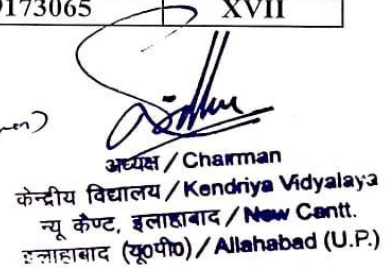 9173065 XVII
अध्यक्ष / Chairman
केन्द्रीय विद्यालय / Kendriya Vidyalaya
न्यू कैण्ट, इलाहाबाद / New Cantt.
इलाहाबाद (यू०पी०) / Allahabad (U.P.)